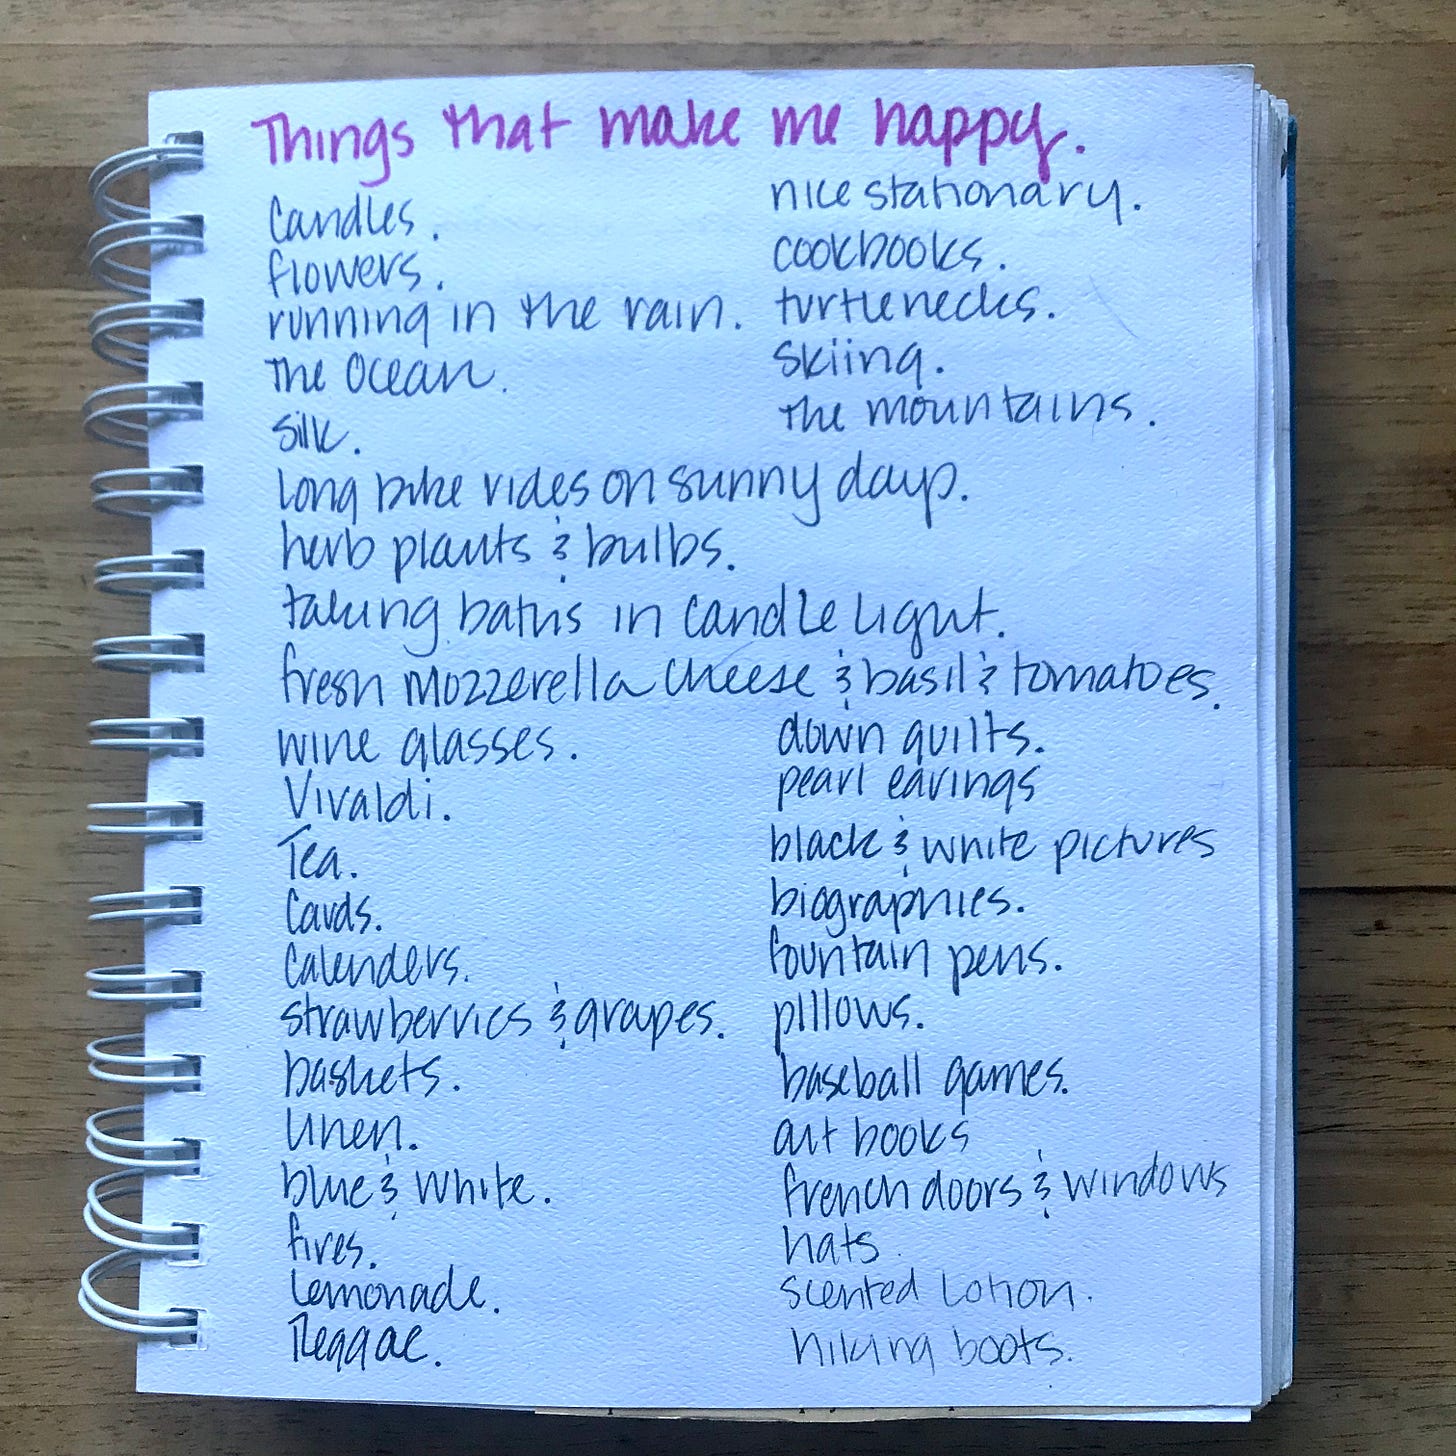 Things that make me happy.
Candles.
flowers.
running in the rain.
The Ocean.
silk.
nice stationary.
cookbooks.
turtlenecks.
skiing.
the mountains.
long bike rides on sunny days.
herb plants & bulbs.
taking baths in candle light.
fresh mozzerella cheese & basil & tomatoes.
wine glasses.
Vivaldi.
Tea.
Cards.
Calenders.
strawberries & grapes.
baskets.
linen.
blue & white.
fires.
Lemonade.
Reggae.
down quilts.
pearl earings
black & white pictures
biographies.
fountain pens.
pillows.
baseball games.
art books
french doors & windows
hats.
scented lotion.
hiking boots.